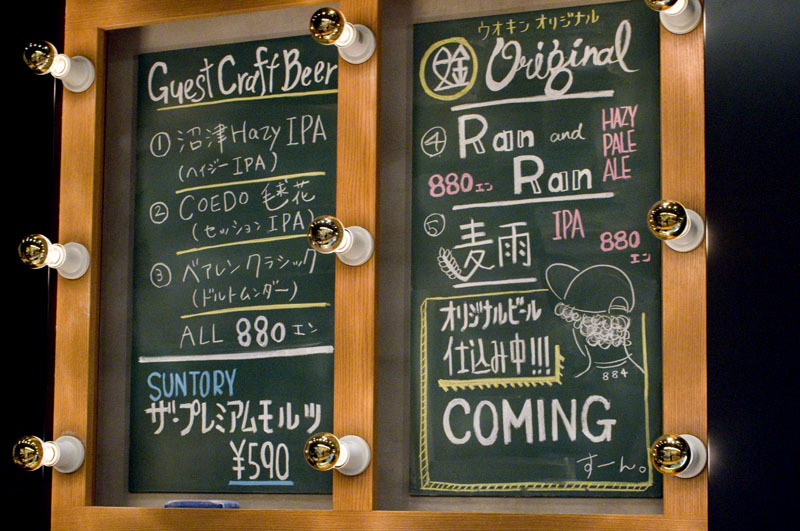 Guest Craft Beer
① 沼津 Hazy IPA
(ヘイジーIPA)
② COEDO 毬花
(セッションIPA)
③ ベアレンクラシック
(ドルトムンダー)
ALL 880エン
SUNTORY
ザ・プレミアムモルツ
¥590
ウオキンオリジナル
金 Original
④ Ran and Ran
HAZY
PALE
ALE
880エン
⑤ 麦雨 IPA
880エン
オリジナルビール
仕込み中!!!
884
COMING
すーん。